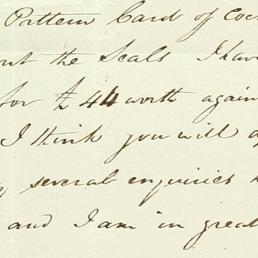 Pattern Card of Coc
out the Seals I have
for £44 worth again
I think you will a
several enquiries
and I am in great